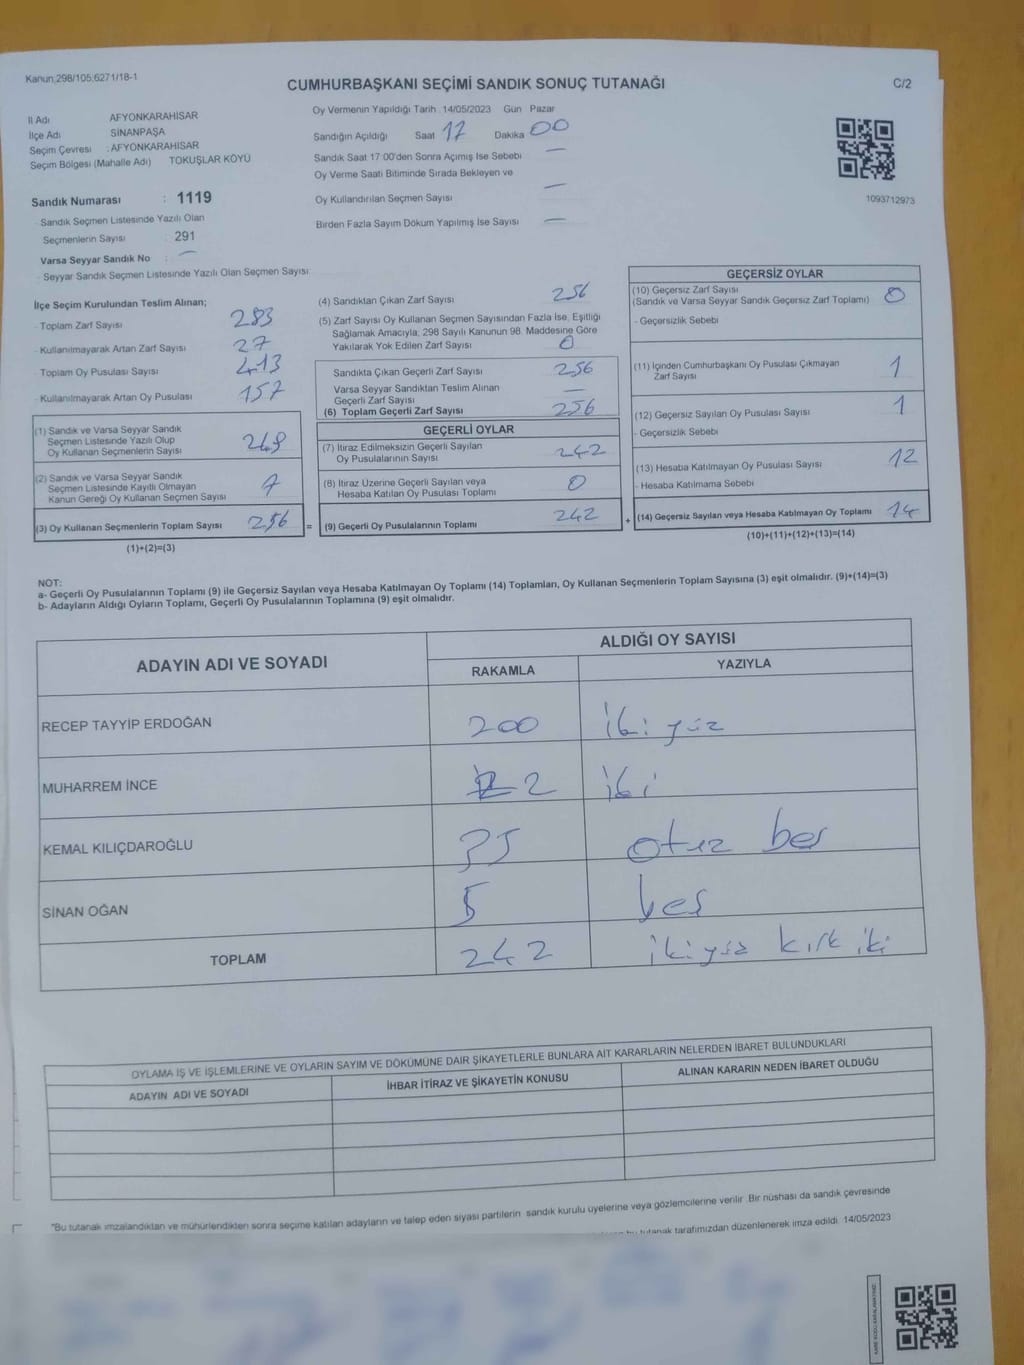 Kanun;298/105;6271/18-1
CUMHURBAŞKANI SEÇİMİ SANDIK SONUÇ TUTANAĞI
C/2
İl Adı AFYONKARAHİSAR
İlçe Adı SİNANPAŞA
Seçim Çevresi : AFYONKARAHİSAR
Seçim Bölgesi (Mahalle Adı) TOKUŞLAR KÖYÜ
Oy Vermenin Yapıldığı Tarih : 14/05/2023 Gün Pazar
Sandığın Açıldığı Saat 17 Dakika 00
Sandık Saat 17:00'den Sonra Açımış İse Sebebi —
Oy Verme Saati Bitiminde Sırada Bekleyen ve
Oy Kullandırılan Seçmen Sayısı —
Birden Fazla Sayım Döküm Yapılmış İse Sayısı —
1093712973
Sandık Numarası : 1119
- Sandık Seçmen Listesinde Yazılı Olan
Seçmenlerin Sayısı : 291
Varsa Seyyar Sandık No : —
- Seyyar Sandık Seçmen Listesinde Yazılı Olan Seçmen Sayısı:
İlçe Seçim Kurulundan Teslim Alınan;
- Toplam Zarf Sayısı 283
- Kullanılmayarak Artan Zarf Sayısı 27
- Toplam Oy Pusulası Sayısı 413
- Kullanılmayarak Artan Oy Pusulası 157
(1) Sandık ve Varsa Seyyar Sandık
Seçmen Listesinde Yazılı Olup
Oy Kullanan Seçmenlerin Sayısı 249
(2) Sandık ve Varsa Seyyar Sandık
Seçmen Listesinde Kayıtlı Olmayan
Kanun Gereği Oy Kullanan Seçmen Sayısı 7
(3) Oy Kullanan Seçmenlerin Toplam Sayısı 256 =
(1)+(2)=(3)
(4) Sandıktan Çıkan Zarf Sayısı 256
(5) Zarf Sayısı Oy Kullanan Seçmen Sayısından Fazla İse, Eşitliği
Sağlamak Amacıyla; 298 Sayılı Kanunun 98. Maddesine Göre
Yakılarak Yok Edilen Zarf Sayısı 0
Sandıkta Çıkan Geçerli Zarf Sayısı 256
Varsa Seyyar Sandıktan Teslim Alınan
Geçerli Zarf Sayısı —
(6) Toplam Geçerli Zarf Sayısı 256
GEÇERLİ OYLAR
(7) İtiraz Edilmeksizin Geçerli Sayılan
Oy Pusulalarının Sayısı 242
(8) İtiraz Üzerine Geçerli Sayılan veya
Hesaba Katılan Oy Pusulası Toplamı 0
(9) Geçerli Oy Pusulalarının Toplamı 242 +
GEÇERSİZ OYLAR
(10) Geçersiz Zarf Sayısı
(Sandık ve Varsa Seyyar Sandık Geçersiz Zarf Toplamı) 0
- Geçersizlik Sebebi
(11) İçinden Cumhurbaşkanı Oy Pusulası Çıkmayan
Zarf Sayısı 1
(12) Geçersiz Sayılan Oy Pusulası Sayısı 1
- Geçersizlik Sebebi
(13) Hesaba Katılmayan Oy Pusulası Sayısı 12
- Hesaba Katılmama Sebebi
(14) Geçersiz Sayılan veya Hesaba Katılmayan Oy Toplamı 14
(10)+(11)+(12)+(13)=(14)
NOT:
a- Geçerli Oy Pusulalarının Toplamı (9) ile Geçersiz Sayılan veya Hesaba Katılmayan Oy Toplamı (14) Toplamları, Oy Kullanan Seçmenlerin Toplam Sayısına (3) eşit olmalıdır. (9)+(14)=(3)
b- Adayların Aldığı Oyların Toplamı, Geçerli Oy Pusulalarının Toplamına (9) eşit olmalıdır.
ADAYIN ADI VE SOYADI ALDIĞI OY SAYISI
RAKAMLA YAZIYLA
RECEP TAYYİP ERDOĞAN 200 iki yüz
MUHARREM İNCE 2 iki
KEMAL KILIÇDAROĞLU 35 otuz beş
SİNAN OĞAN 5 beş
TOPLAM 242 ikiyüz kırk iki
OYLAMA İŞ VE İŞLEMLERİNE VE OYLARIN SAYIM VE DÖKÜMÜNE DAİR ŞİKAYETLERLE BUNLARA AİT KARARLARIN NELERDEN İBARET BULUNDUKLARI
ADAYIN ADI VE SOYADI İHBAR İTİRAZ VE ŞİKAYETİN KONUSU ALINAN KARARIN NEDEN İBARET OLDUĞU
"Bu tutanak imzalandıktan ve mühürlendikten sonra seçime katılan adayların ve talep eden siyasi partilerin sandık kurulu üyelerine veya gözlemcilerine verilir. Bir nüshası da sandık çevresinde
bu tutanak tarafımızdan düzenlenerek imza edildi. 14/05/2023